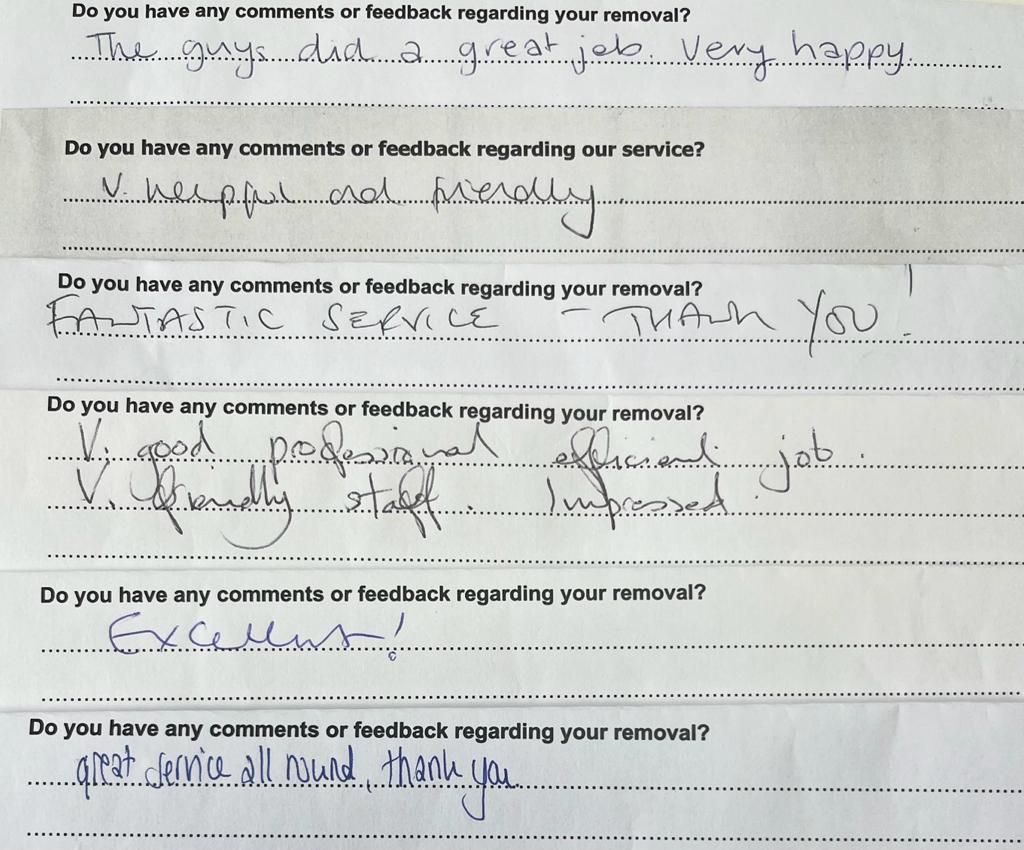 Do you have any comments or feedback regarding your removal?
The guys did a great job. Very happy.
Do you have any comments or feedback regarding our service?
V. helpful and friendly
Do you have any comments or feedback regarding your removal?
FANTASTIC SERVICE - THANK YOU!
Do you have any comments or feedback regarding your removal?
V. good professional efficient job.
V. friendly staff. Impressed.
Do you have any comments or feedback regarding your removal?
Excellent!
Do you have any comments or feedback regarding your removal?
great service all round, thank you